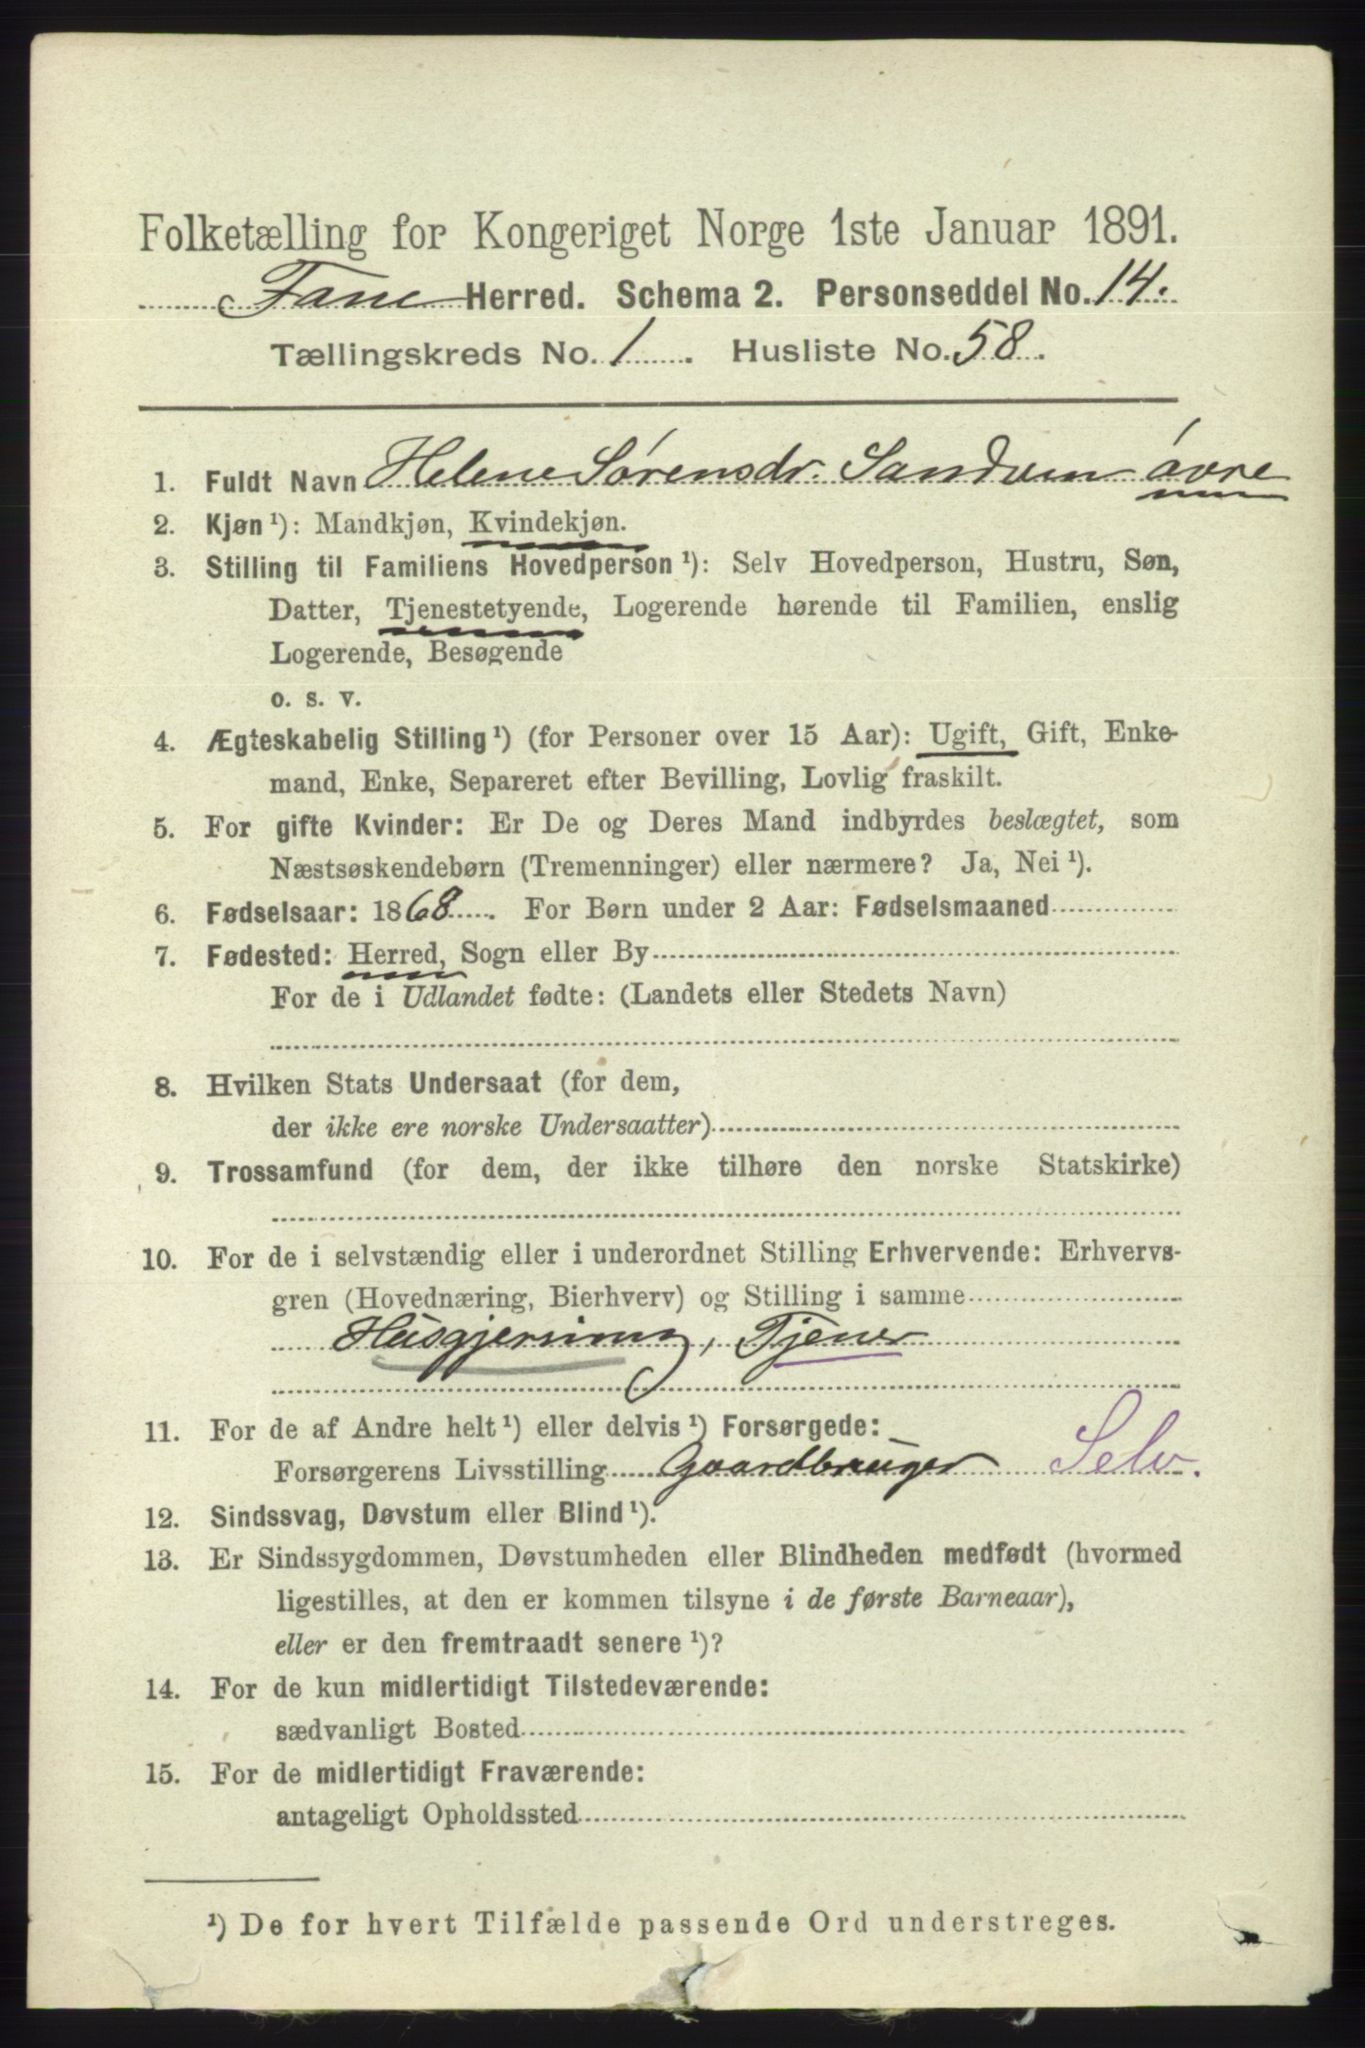 Folketælling for Kongeriget Norge 1ste Januar 1891.
Fane Herred. Schema 2. Personseddel No. 14.
Tællingskreds No. 1 . Husliste No. 58.
1. Fuldt Navn Helene Sørensdr. Sandven øvre
2. Kjøn ¹): Mandkjøn, Kvindekjøn.
3. Stilling til Familiens Hovedperson ¹): Selv Hovedperson, Hustru, Søn,
Datter, Tjenestetyende, Logerende hørende til Familien, enslig
Logerende, Besøgende
o. s. v.
4. Ægteskabelig Stilling ¹) (for Personer over 15 Aar): Ugift, Gift, Enke-
mand, Enke, Separeret efter Bevilling, Lovlig fraskilt.
5. For gifte Kvinder: Er De og Deres Mand indbyrdes beslægtet, som
Næstsøskendebørn (Tremenninger) eller nærmere? Ja, Nei ¹).
6. Fødselsaar: 1868 . For Børn under 2 Aar: Fødselsmaaned
7. Fødested: Herred, Sogn eller By
For de i Udlandet fødte: (Landets eller Stedets Navn)
8. Hvilken Stats Undersaat (for dem,
der ikke ere norske Undersaatter)
9. Trossamfund (for dem, der ikke tilhøre den norske Statskirke)
10. For de i selvstændig eller i underordnet Stilling Erhvervende: Erhvervs-
gren (Hovednæring, Bierhverv) og Stilling i samme
Husgjerning, Tjener
11. For de af Andre helt ¹) eller delvis ¹) Forsørgede:
Forsørgerens Livsstilling Gaardbruger Selv.
12. Sindssvag, Døvstum eller Blind ¹).
13. Er Sindssygdommen, Døvstumheden eller Blindheden medfødt (hvormed
ligestilles, at den er kommen tilsyne i de første Barneaar),
eller er den fremtraadt senere ¹)?
14. For de kun midlertidigt Tilstedeværende:
sædvanligt Bosted
15. For de midlertidigt Fraværende:
antageligt Opholdssted
¹) De for hvert Tilfælde passende Ord understreges.